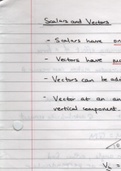 Scalars and Vectors
- Scalars have
- Vectors have
- Vectors can be
- Vector at an
vertical component.